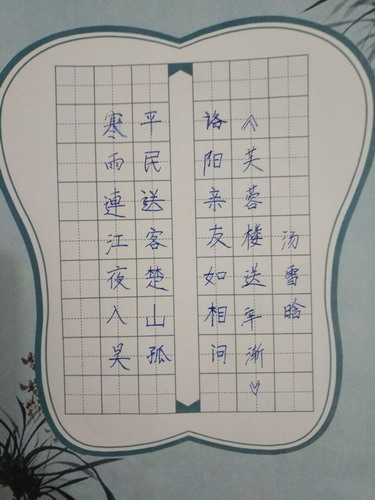 寒雨連江夜入吴
平民送客楚山孤
洛阳亲友如相问
《芙蓉楼送辛渐》
汤雪晗